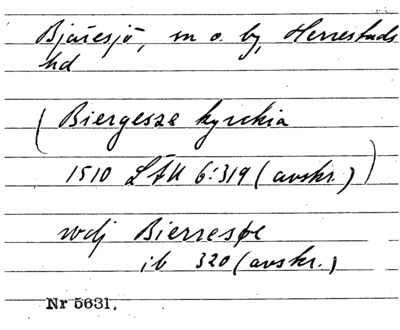 Bjäresjö, m o. by, Herrestads
hd
(Biergesze kyrckia
1510 LÄU 6:319 (avskr.))
wdj Bierresøe
ib 320 (avskr.)
Nr 5631.